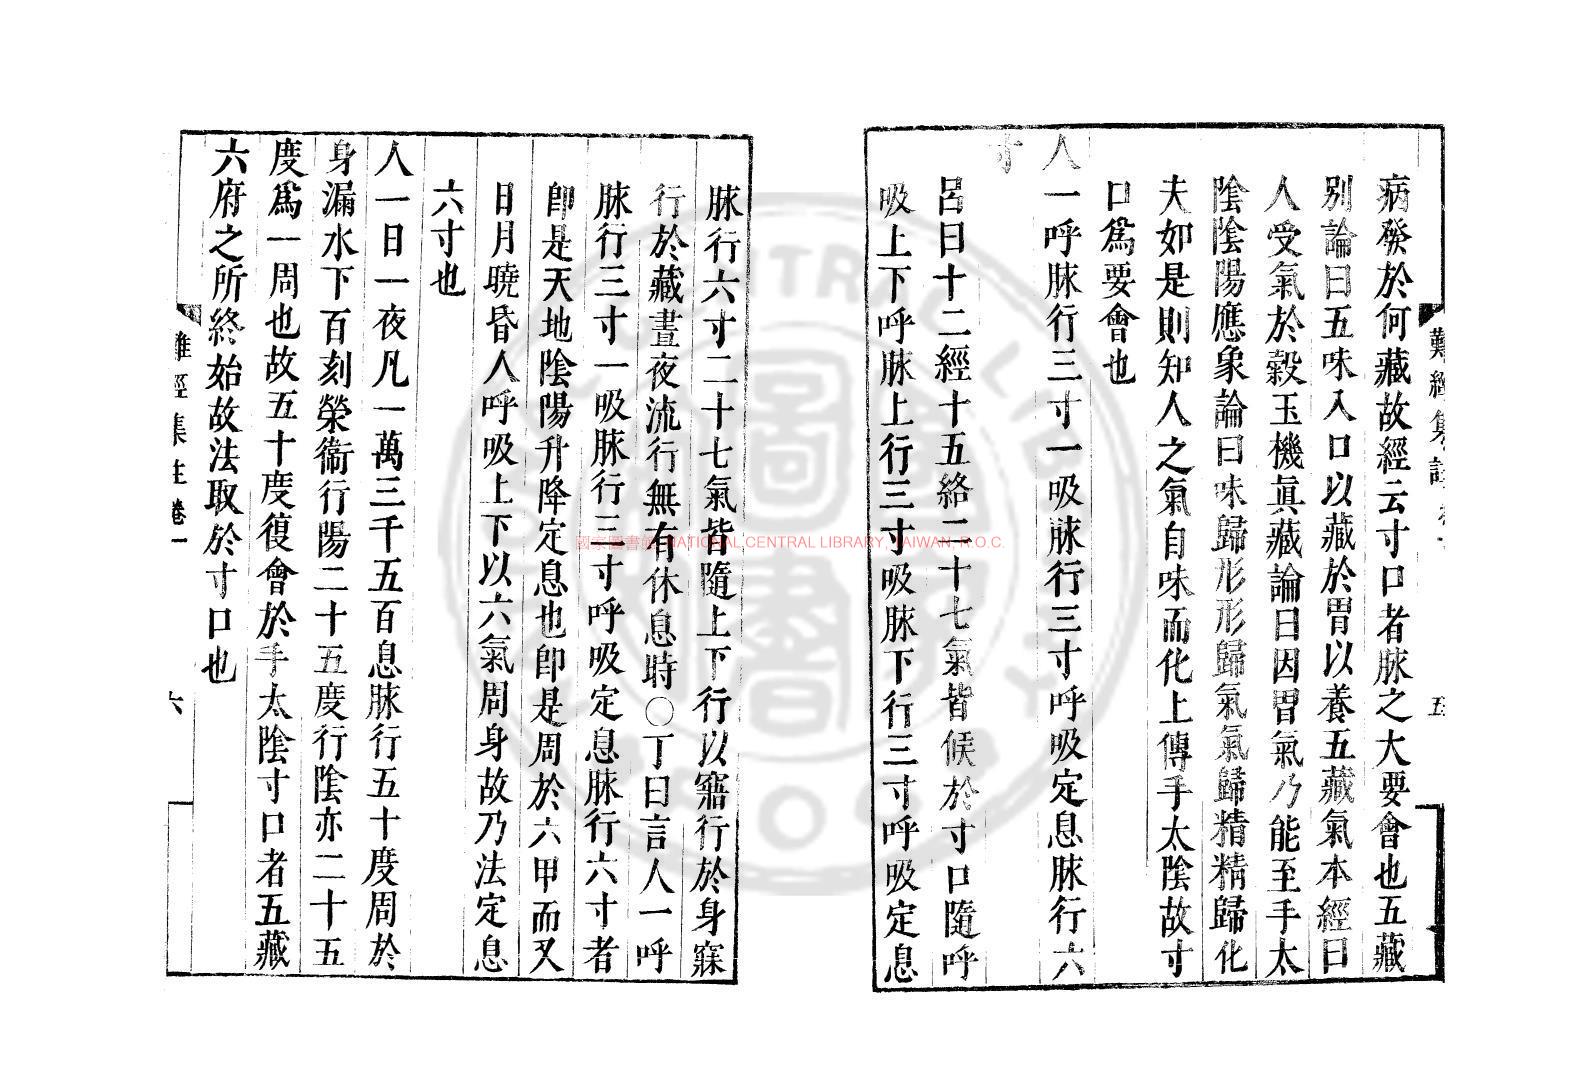 難經集註卷一
五
病發於何藏故經云寸口者脉之大要會也五藏
别論曰五味入口以藏於胃以養五藏氣本經曰
人受氣於穀玉機眞藏論曰因胃氣乃能至手太
陰陰陽應象論曰味歸形形歸氣氣歸精精歸化
夫如是則知人之氣自味而化上傳手太陰故寸
口爲要會也
人一呼脉行三寸一吸脉行三寸呼吸定息脉行六
寸
呂曰十二經十五絡二十七氣皆候於寸口隨呼
吸上下呼脉上行三寸吸脉下行三寸呼吸定息
脉行六寸二十七氣皆隨上下行以寤行於身寐
行於藏晝夜流行無有休息時〇丁曰言人一呼
脉行三寸一吸脉行三寸呼吸定息脉行六寸者
卽是天地陰陽升降定息也卽是周於六甲而又
日月曉昏人呼吸上下以六氣周身故乃法定息
六寸也
人一日一夜凡一萬三千五百息脉行五十度周於
身漏水下百刻榮衞行陽二十五度行陰亦二十五
度爲一周也故五十度復會於手太陰寸口者五藏
六府之所終始故法取於寸口也
難經集註卷一
六
國家圖書館 NATIONAL CENTRAL LIBRARY, TAIWAN, R.O.C.